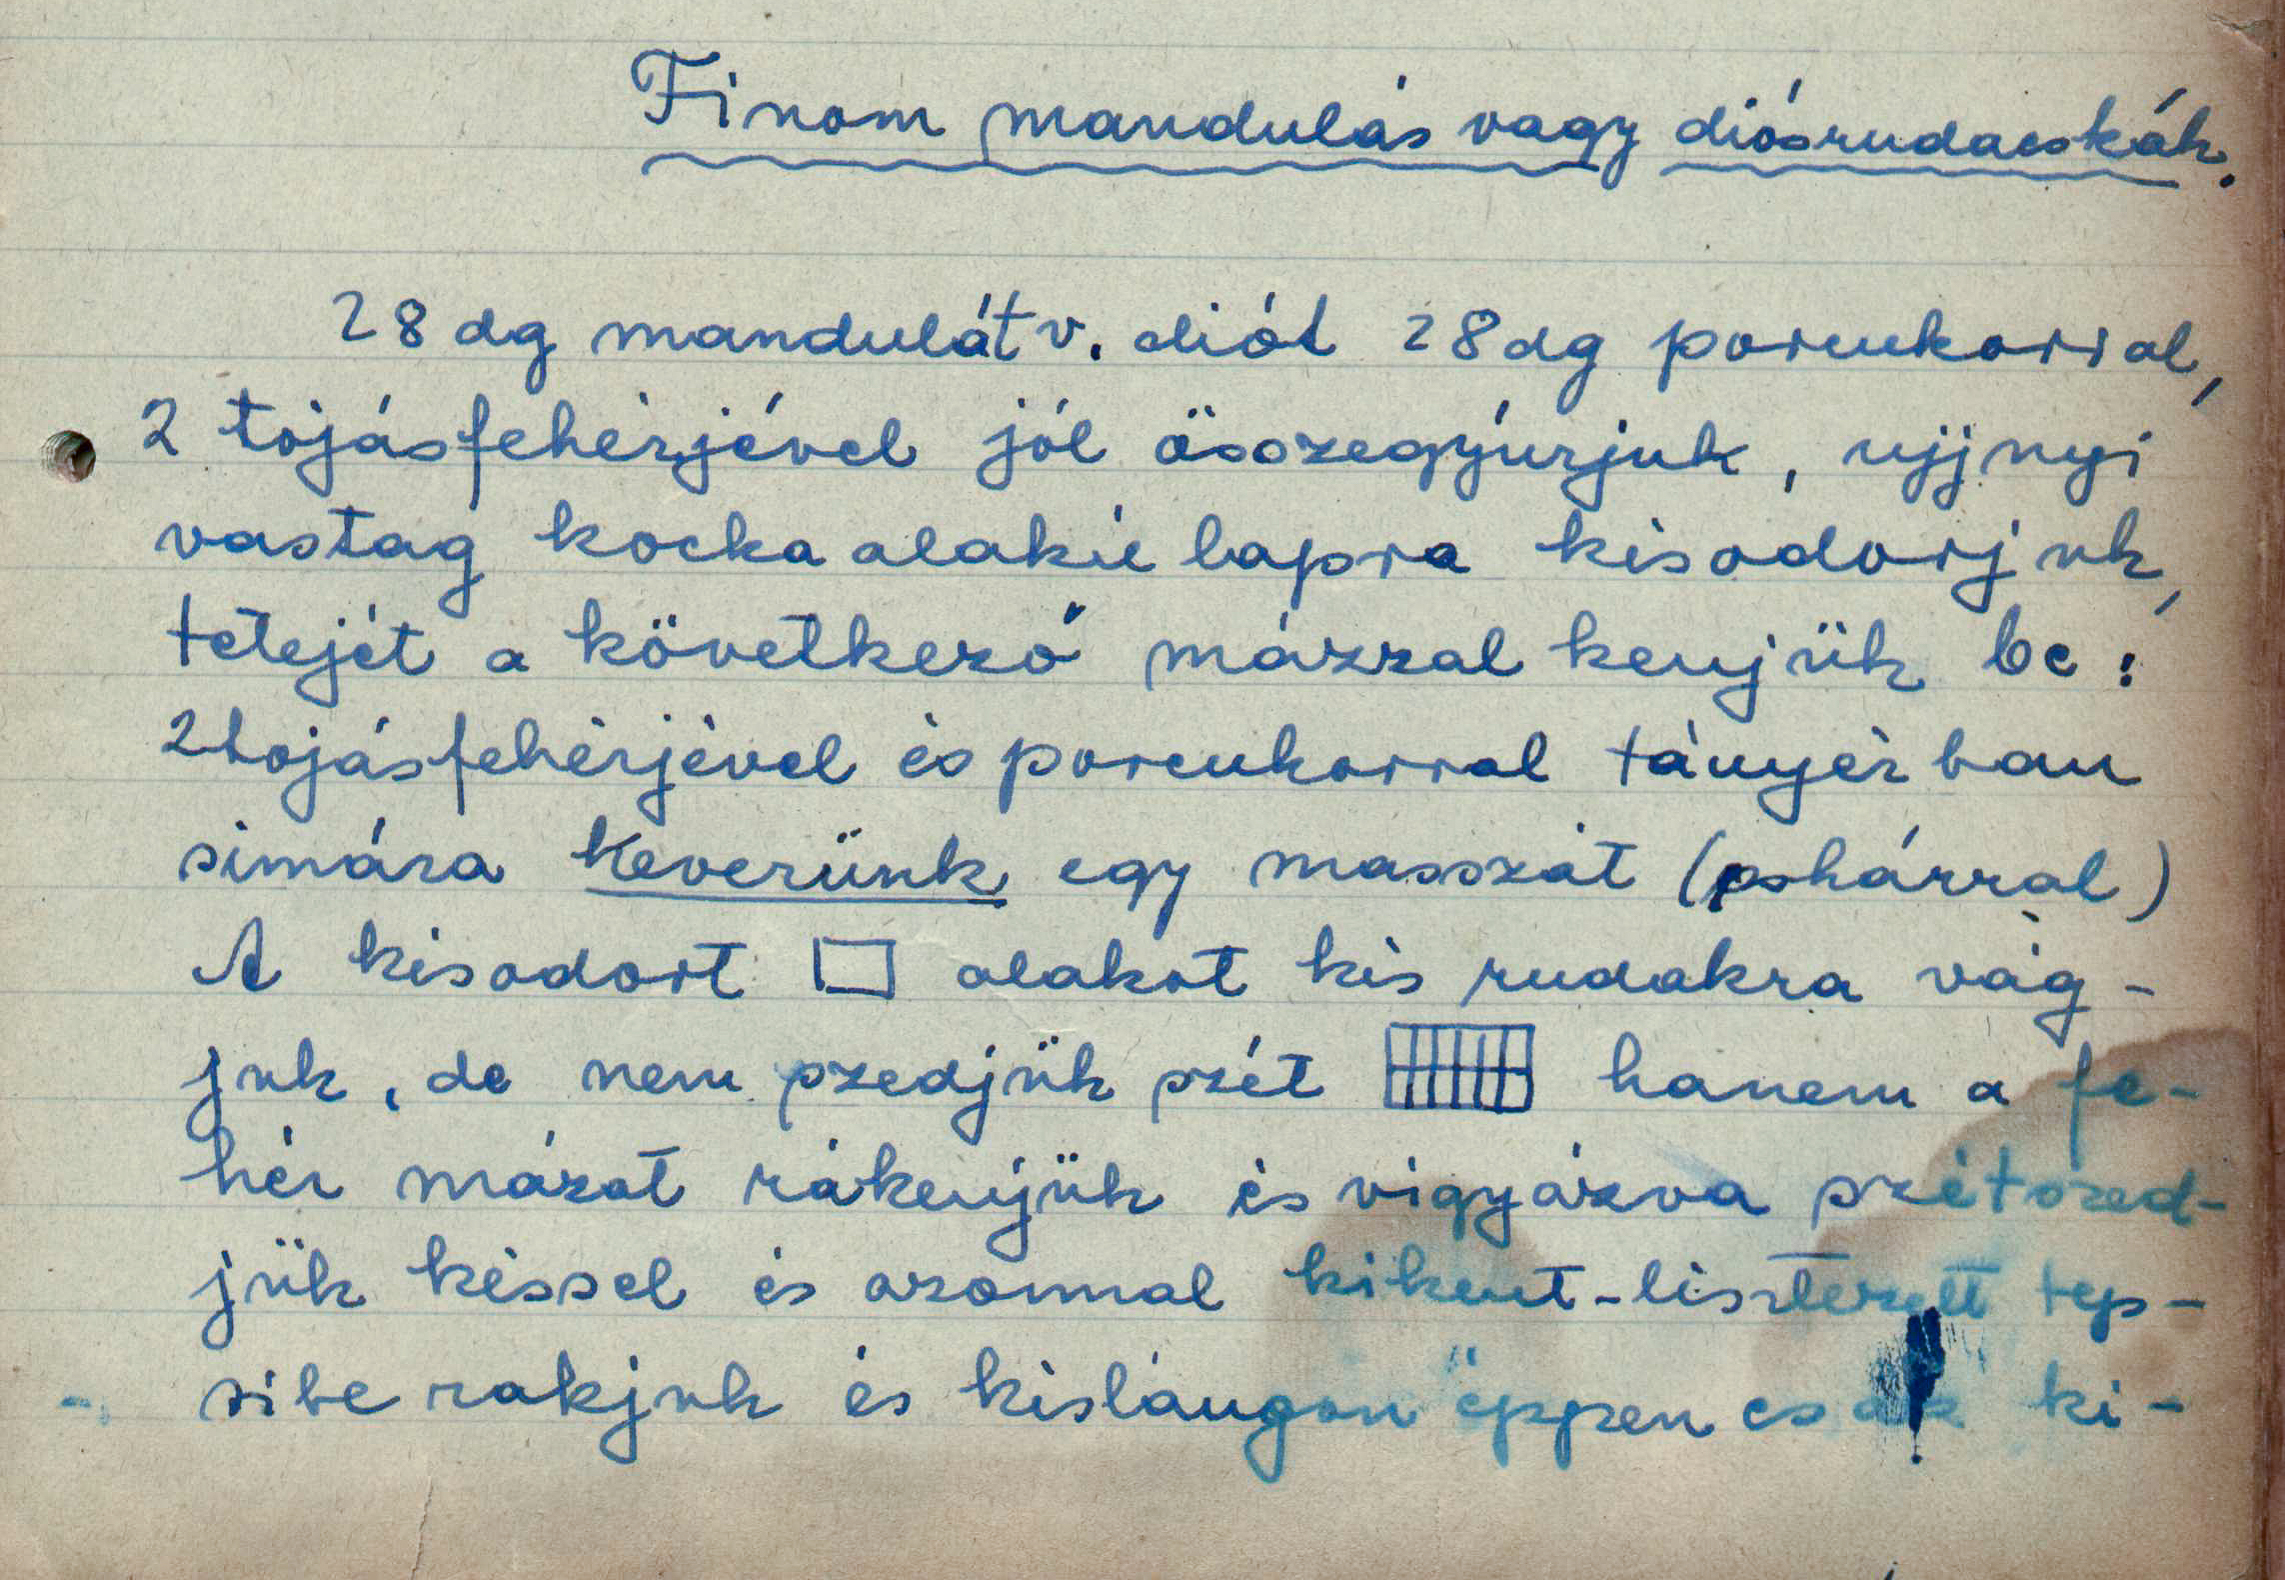 Finom mandulás vagy diósrudacskák.
28 dg mandulát v. diót 28 dg porcukorral,
2 tojásfehérjével jól összegyúrjuk, ujjnyi
vastag kocka alakú lapra kisodorjuk,
tetejét a következő mázzal kenjük be:
2 tojásfehérjével és porcukorral tányérban
simára keverünk egy masszát (pohárral)
A kisodort alakot kis rudakra vág-
juk, de nem szedjük szét hanem a fe-
hér mázat rákenjük és vigyázva szétszed-
jük késsel és azonnal kikent-lisztezett tep-
sibe rakjuk és kislángon éppen csak ki-